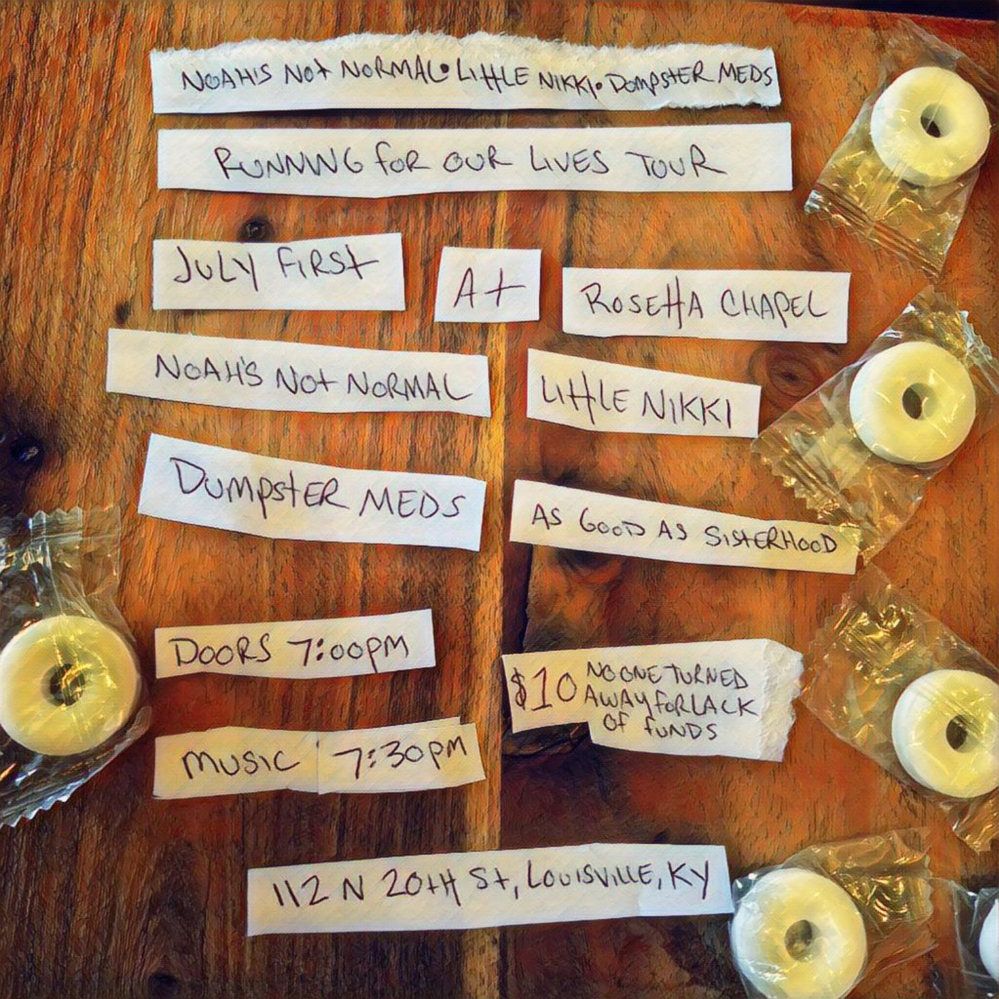 NOAH'S NOT NORMAL • LITTLE NIKKI • DUMPSTER MEDS
RUNNING FOR OUR LIVES TOUR
JULY FIRST At ROSETTA CHAPEL
NOAH'S NOT NORMAL LITTLE NIKKI
DUMPSTER MEDS AS GOOD AS SISTERHOOD
DOORS 7:00PM
$10 NO ONE TURNED
AWAY FOR LACK
OF FUNDS
MUSIC 7:30PM
112 N 20TH ST, LOUISVILLE, KY